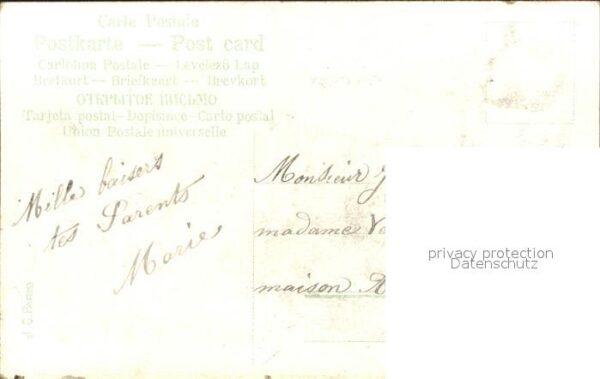 Carte Postale
Postkarte — Post card
Cartolina Postale — Levelező Lap
Brefkort — Briefkaart — Brevkort
ОТКРЫТОЕ ПИСЬМО
Tarjeta postal – Dopisnice – Carto postal
Union Postale universelle
Mille baisers
tes Parents
Marie
Monsieur J
madame Ve
maison A
privacy protection
Datenschutz